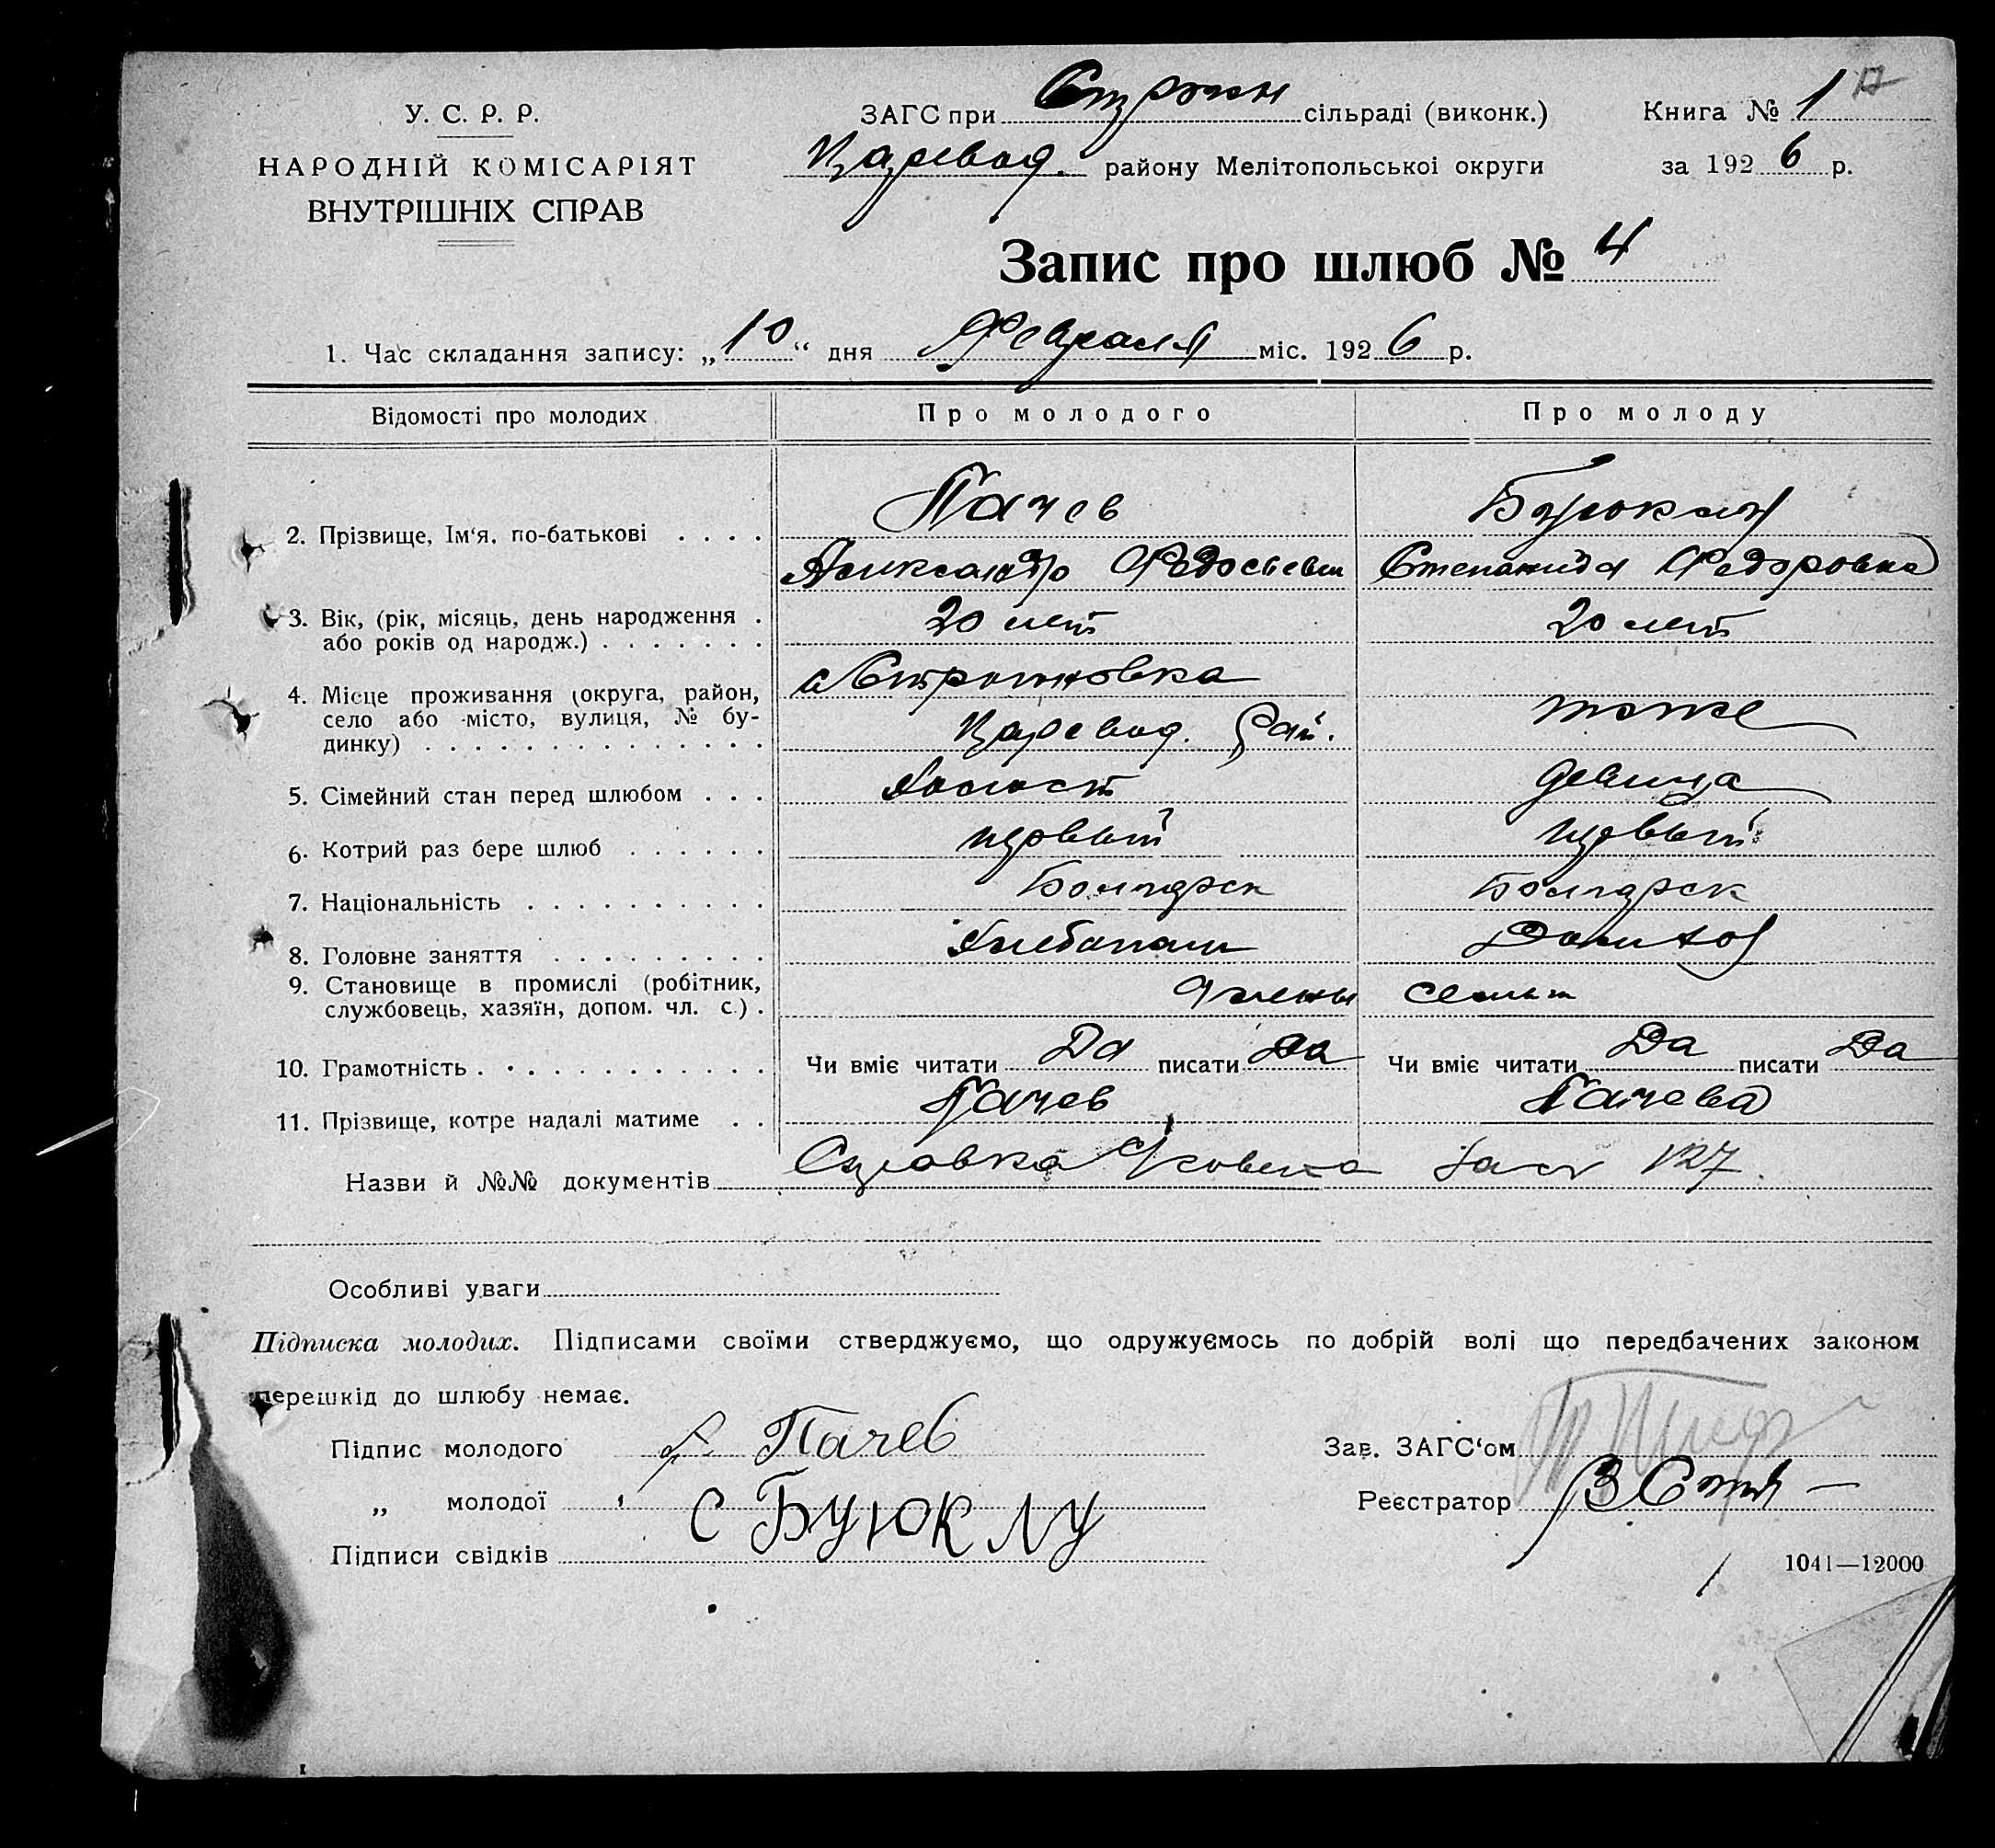 У. С. Р. Р.
НАРОДНІЙ КОМІСАРІЯТ
ВНУТРІШНІХ СПРАВ
ЗАГС при Строган сільраді (виконк.)
Царевод. району Мелітопольської округи
Книга № 1
за 1926 р.
Запис про шлюб № 4
1. Час складання запису: „10“ дня Февраля міс. 1926 р.
Відомості про молодих Про молодого Про молоду
2. Прізвище, Ім'я, по-батькові . . . . Пачев Буюклу
Александр Федосьевич Степанида Федоровна
3. Вік, (рік, місяць, день народження . 20 лет 20 лет
або років од народж.) . . . . . . .
4. Місце проживання (округа, район, с Строгановка тоже
село або місто, вулиця, № бу- Царевод. Рай.
динку) . . . . . . . . . . . . . .
5. Сімейний стан перед шлюбом . . . Холост девица
6. Котрий раз бере шлюб . . . . . . первый первый
7. Національність . . . . . . . . . . Болгарск Болгарск
8. Головне заняття . . . . . . . . . Хлебопаш Домихоз
9. Становище в промислі (робітник, члены семьи
службовець, хазяїн, допом. чл. с.) .
10. Грамотність . . . . . . . . . . . . Чи вміє читати Да писати Да Чи вміє читати Да писати Да
11. Прізвище, котре надалі матиме . . Пачев Пачева
Назви й №№ документів Справка 127
Особливі уваги
Підписка молодих. Підписами своїми стверджуємо, що одружуємось по добрій волі що передбачених законом
перешкід до шлюбу немає.
Підпис молодого Пачев
„ молодої С БУЮКЛУ
Підписи свідків
Зав. ЗАГС'ом
Реєстратор
1041—12000